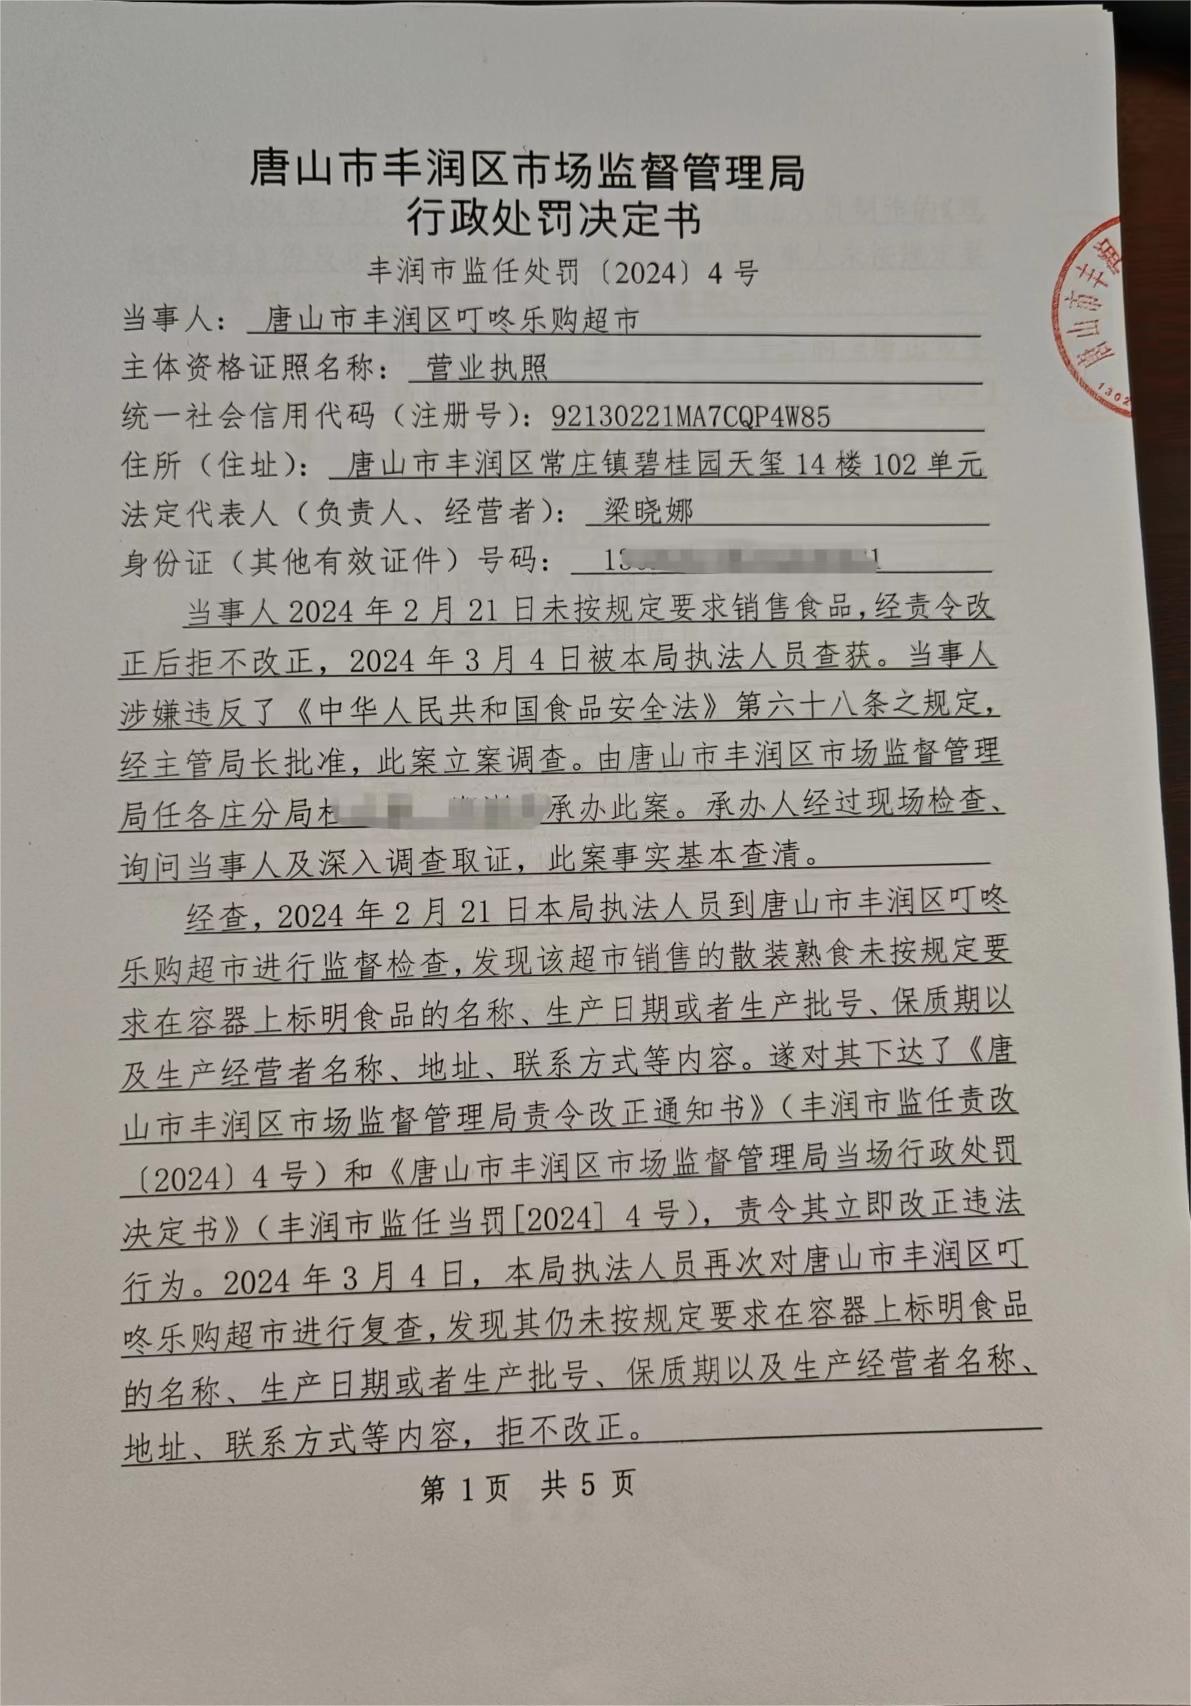 唐山市丰润区市场监督管理局
行政处罚决定书
丰润市监任处罚〔2024〕4号
当事人：唐山市丰润区叮咚乐购超市
主体资格证照名称：营业执照
统一社会信用代码（注册号）：92130221MA7CQP4W85
住所（住址）：唐山市丰润区常庄镇碧桂园天玺14楼102单元
法定代表人（负责人、经营者）：梁晓娜
身份证（其他有效证件）号码：
当事人2024年2月21日未按规定要求销售食品，经责令改
正后拒不改正，2024年3月4日被本局执法人员查获。当事人
涉嫌违反了《中华人民共和国食品安全法》第六十八条之规定，
经主管局长批准，此案立案调查。由唐山市丰润区市场监督管理
局任各庄分局 承办此案。承办人经过现场检查、
询问当事人及深入调查取证，此案事实基本查清。
经查，2024年2月21日本局执法人员到唐山市丰润区叮咚
乐购超市进行监督检查，发现该超市销售的散装熟食未按规定要
求在容器上标明食品的名称、生产日期或者生产批号、保质期以
及生产经营者名称、地址、联系方式等内容。遂对其下达了《唐
山市丰润区市场监督管理局责令改正通知书》（丰润市监任责改
〔2024〕4号）和《唐山市丰润区市场监督管理局当场行政处罚
决定书》（丰润市监任当罚[2024]4号），责令其立即改正违法
行为。2024年3月4日，本局执法人员再次对唐山市丰润区叮
咚乐购超市进行复查，发现其仍未按规定要求在容器上标明食品
的名称、生产日期或者生产批号、保质期以及生产经营者名称、
地址、联系方式等内容，拒不改正。
第1页 共5页
唐山市丰润
1302